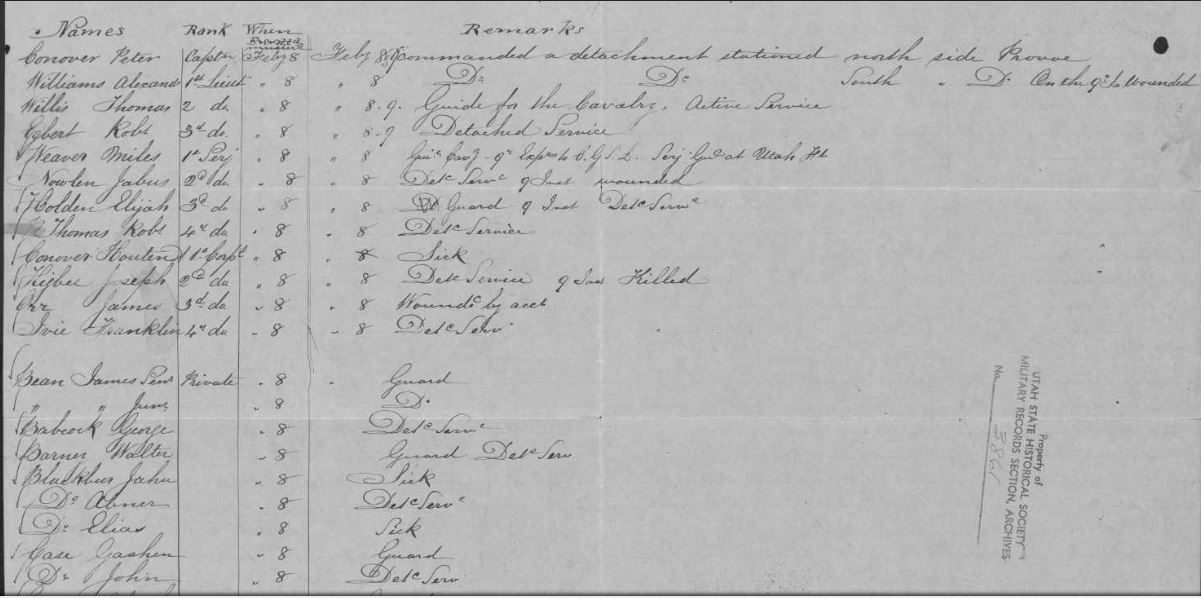 Names Rank When Remarks
mustered
Conover Peter Captn Feby 8 Feby 8 & 9 Commanded a detachment stationed north side Provoe
Williams Alexand 1st Lieut " 8 " 8 Do Do South " Do On the 9th Wounded
Willis Thomas 2 do " 8 " 8.9. Guide for the Cavalry, Active Service
Egbert Robt 3d do " 8 " 8.9 Detached Service
Weaver Miles 1st Serj " 8 " 8 at Utah Ft
Nowlen Jabus 2d do " 8 " 8 Detc Servc 9 Inst wounded
Holden Elijah 3d do " 8 " 8 Guard 9 Inst Detc Servc
Thomas Robt 4th do " 8 " 8 Detc Service
Conover Houten 1st Corpl " 8 " 8 Sick
Higbee Joseph 2d do " 8 " 8 Detc Service 9 Inst Killed
Orr James 3d do " 8 " 8 Woundc by acct
Ivie Franklin 4th do " 8 " 8 Detc Serv
Bean James Senr Private " 8 " Guard
" " Junr " 8 Do
Babcock George " 8 Detc Servc
Barner Walter " 8 Guard Detc Serv
Blackbur John " 8 Sick
Do Abner " 8 Detc Servc
Do Elias " 8 Sick
Case Gashen " 8 Guard
Do John " 8 Detc Serv
Property of
UTAH STATE HISTORICAL SOCIETY
MILITARY RECORDS SECTION, ARCHIVES
No. 386